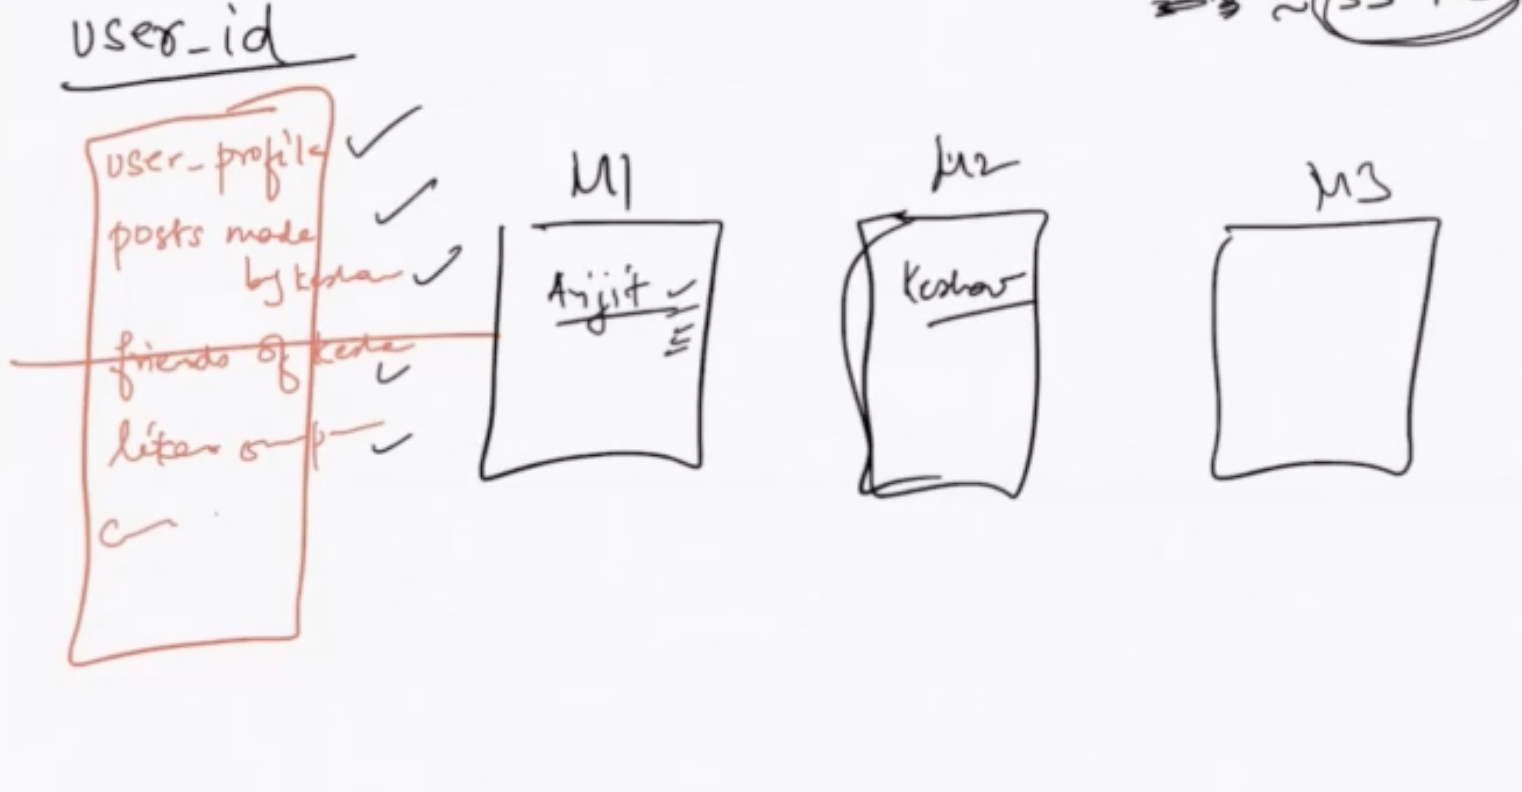 user_id
user_profile
posts made
by keshav
friends of
likes
M1
Arijit
M2
Keshav
M3